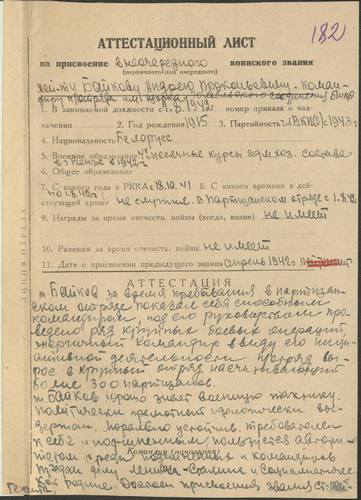 182
АТТЕСТАЦИОННЫЙ ЛИСТ
на присвоение внеочередного воинского звания
(первичного или очередного)
лей-ту Байкову Андрею Прокопьевичу - коман-
диру отряда им.
1. В занимаемой должности с 1942 номер приказа о наз-
начении 2. Год рождения 1915 3. Партийность чл ВКП(б) с 1943 г
4. Национальность Белорусс
5. Военное образование 4х месячные курсы состава
в 1942 г
6. Общее образование
7. С какого года в РККА с 18.10.41 8. С какого времени в дей-
ствующей армии не служил. в Партизанском отряде с 1.8.42
по 1.8.42 г.
9. Награды за время отечеств. войны (когда, какие) не имеет
10. Ранения за время отечеств. войны не имеет
11. Дата о присвоении предыдущего звания апрель 1942 г.
ЛИНИЯ ОТРЕЗА
АТТЕСТАЦИЯ
т. Байков за время пребывания в партизан-
ском отряде показал себя способным
командиром, под его руководством про-
ведено ряд крупных боевых операций,
энергичный командир в виду его иници-
ативной деятельности отряд вы-
рос в крупный отряд насчитывающий
более 300 партизанов.
т. Байков хорошо знает военную технику.
Политически грамотный идеологически вы-
держан. Морально устойчив. Требователен
к себе и подчиненным, пользуется автори-
тетом среди подчиненных и командиров
Командир (начальник)
предан делу Ленина-Сталина и социалистичес-
кой родине. Достоин присвоения звания ст. лей-
тенанта